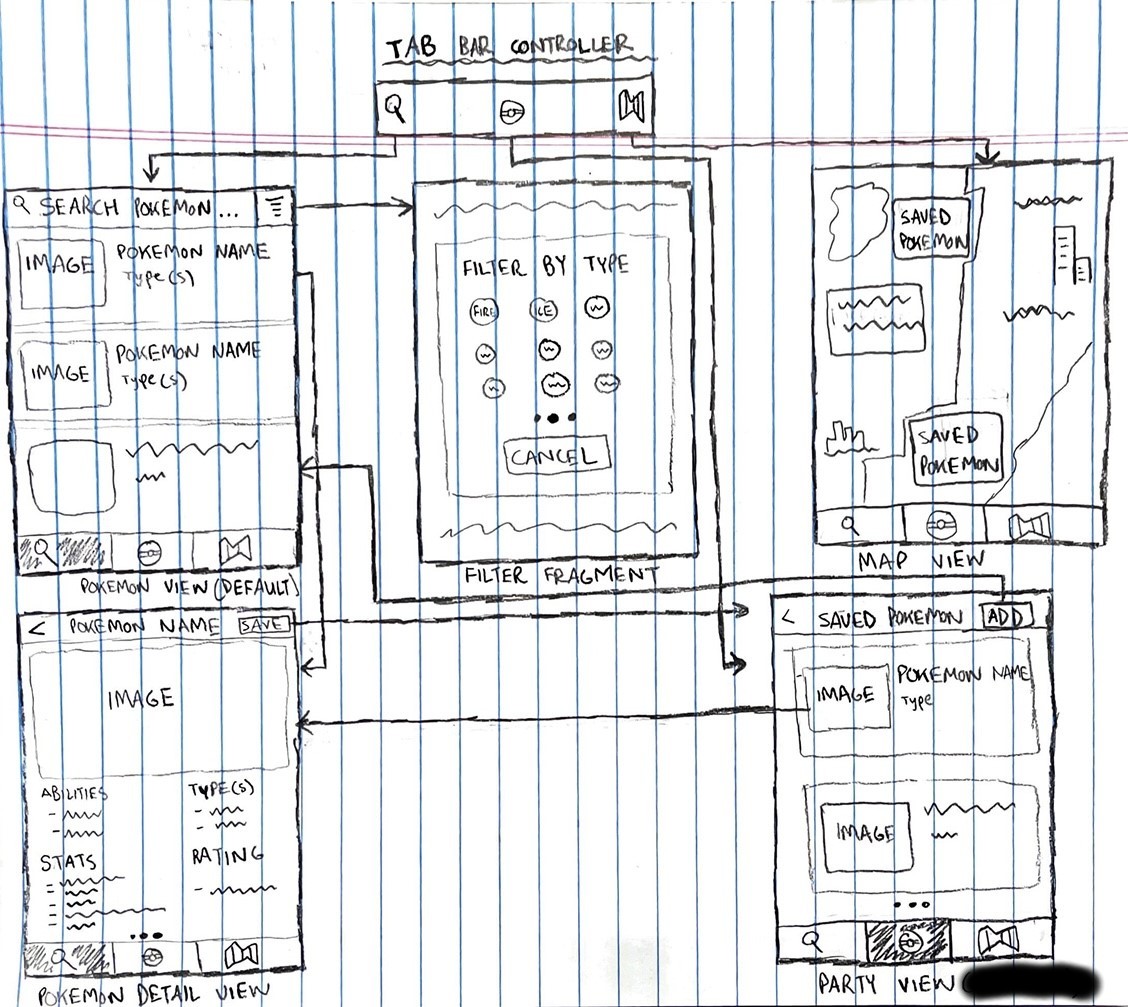 TAB BAR CONTROLLER
SEARCH POKEMON...
IMAGE
POKEMON NAME
Type(s)
IMAGE
POKEMON NAME
Type(s)
POKEMON VIEW (DEFAULT)
FILTER BY TYPE
FIRE
ICE
CANCEL
FILTER FRAGMENT
SAVED
POKEMON
SAVED
POKEMON
MAP VIEW
< POKEMON NAME SAVE
IMAGE
ABILITIES
TYPE(S)
STATS
RATING
POKEMON DETAIL VIEW
< SAVED POKEMON ADD
IMAGE
POKEMON NAME
Type
IMAGE
PARTY VIEW